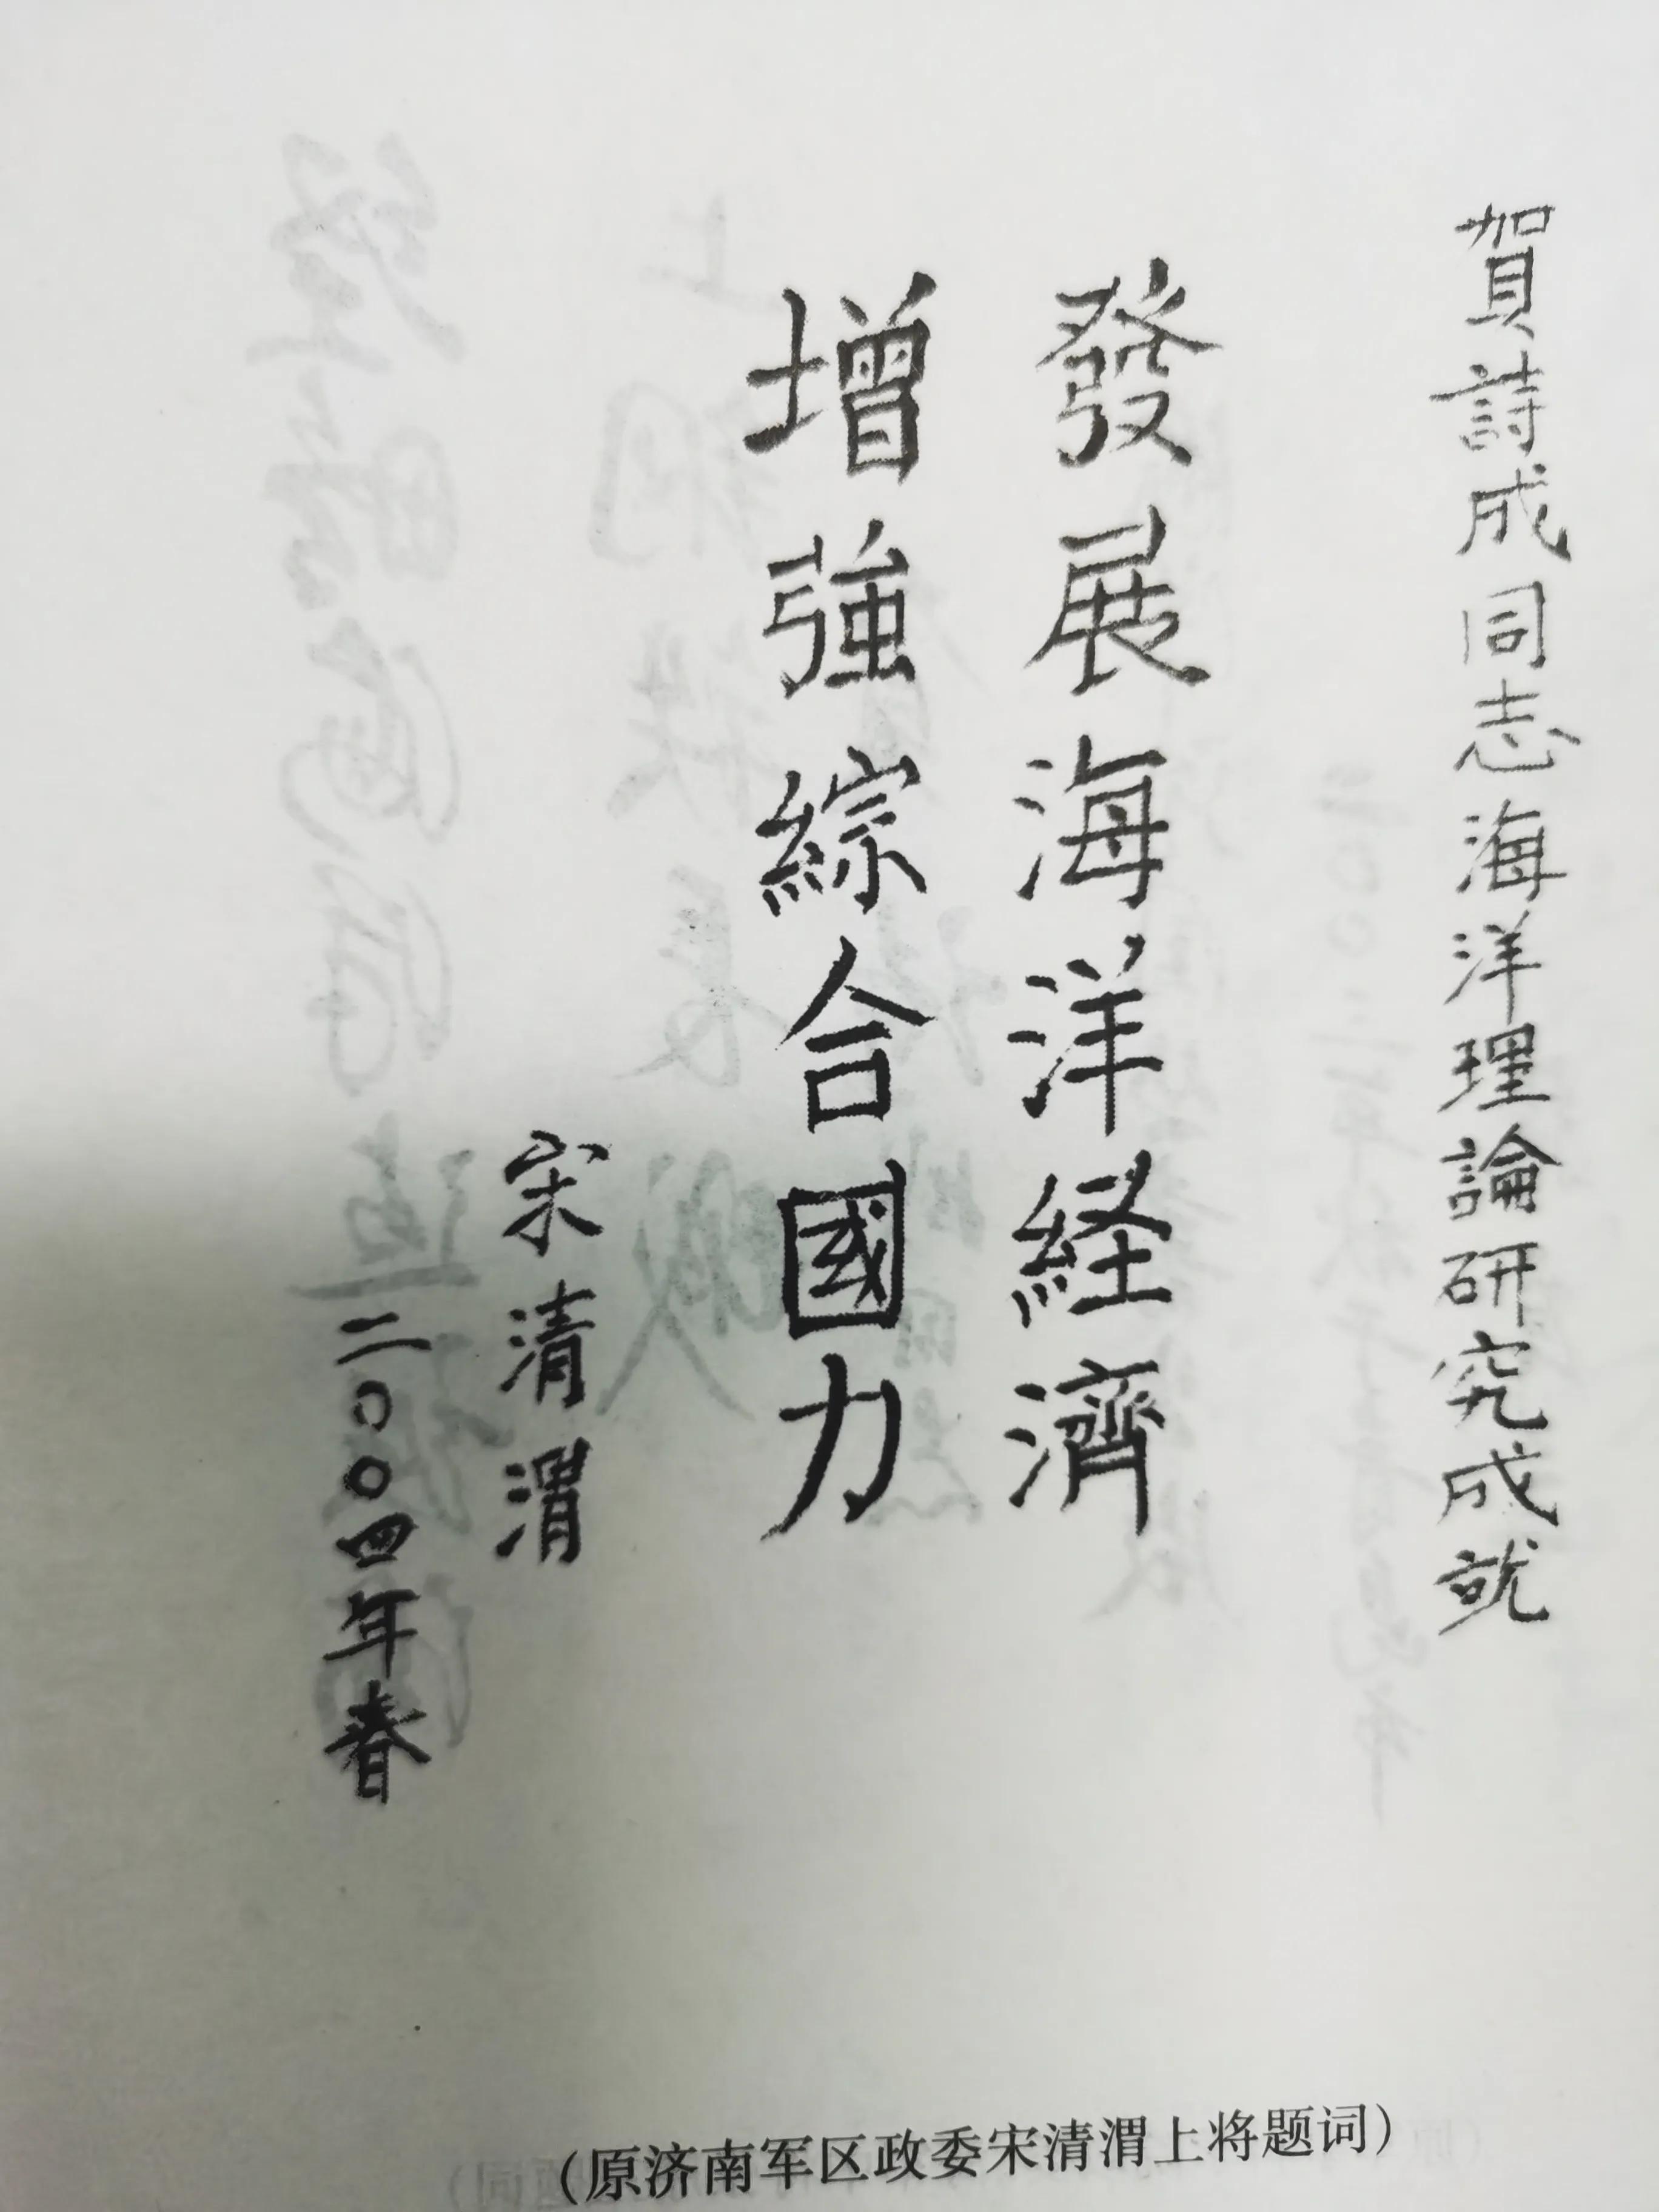 賀詩成同志海洋理論研究成就
發展海洋経濟
增強綜合國力
宋清渭
二〇〇四年春
（原济南军区政委宋清渭上将题词）